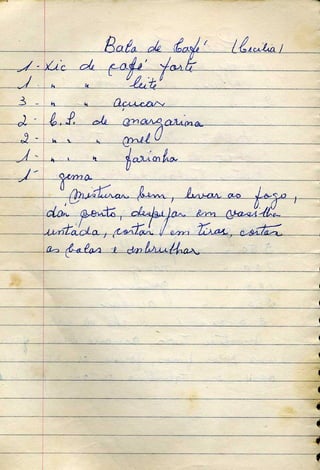 Bala de Café (Cecilia)
1 - xic de café forte
1 - " " leite
3 - " " açucar
2 - C.S. de margarina
2 - " " " mel
1 - " " " farinha
1 - gema
Misturar bem, levar ao fogo,
dar ponto, despejar em vasilha
untada, cortar em tiras, cortar
as balas e embrulhar